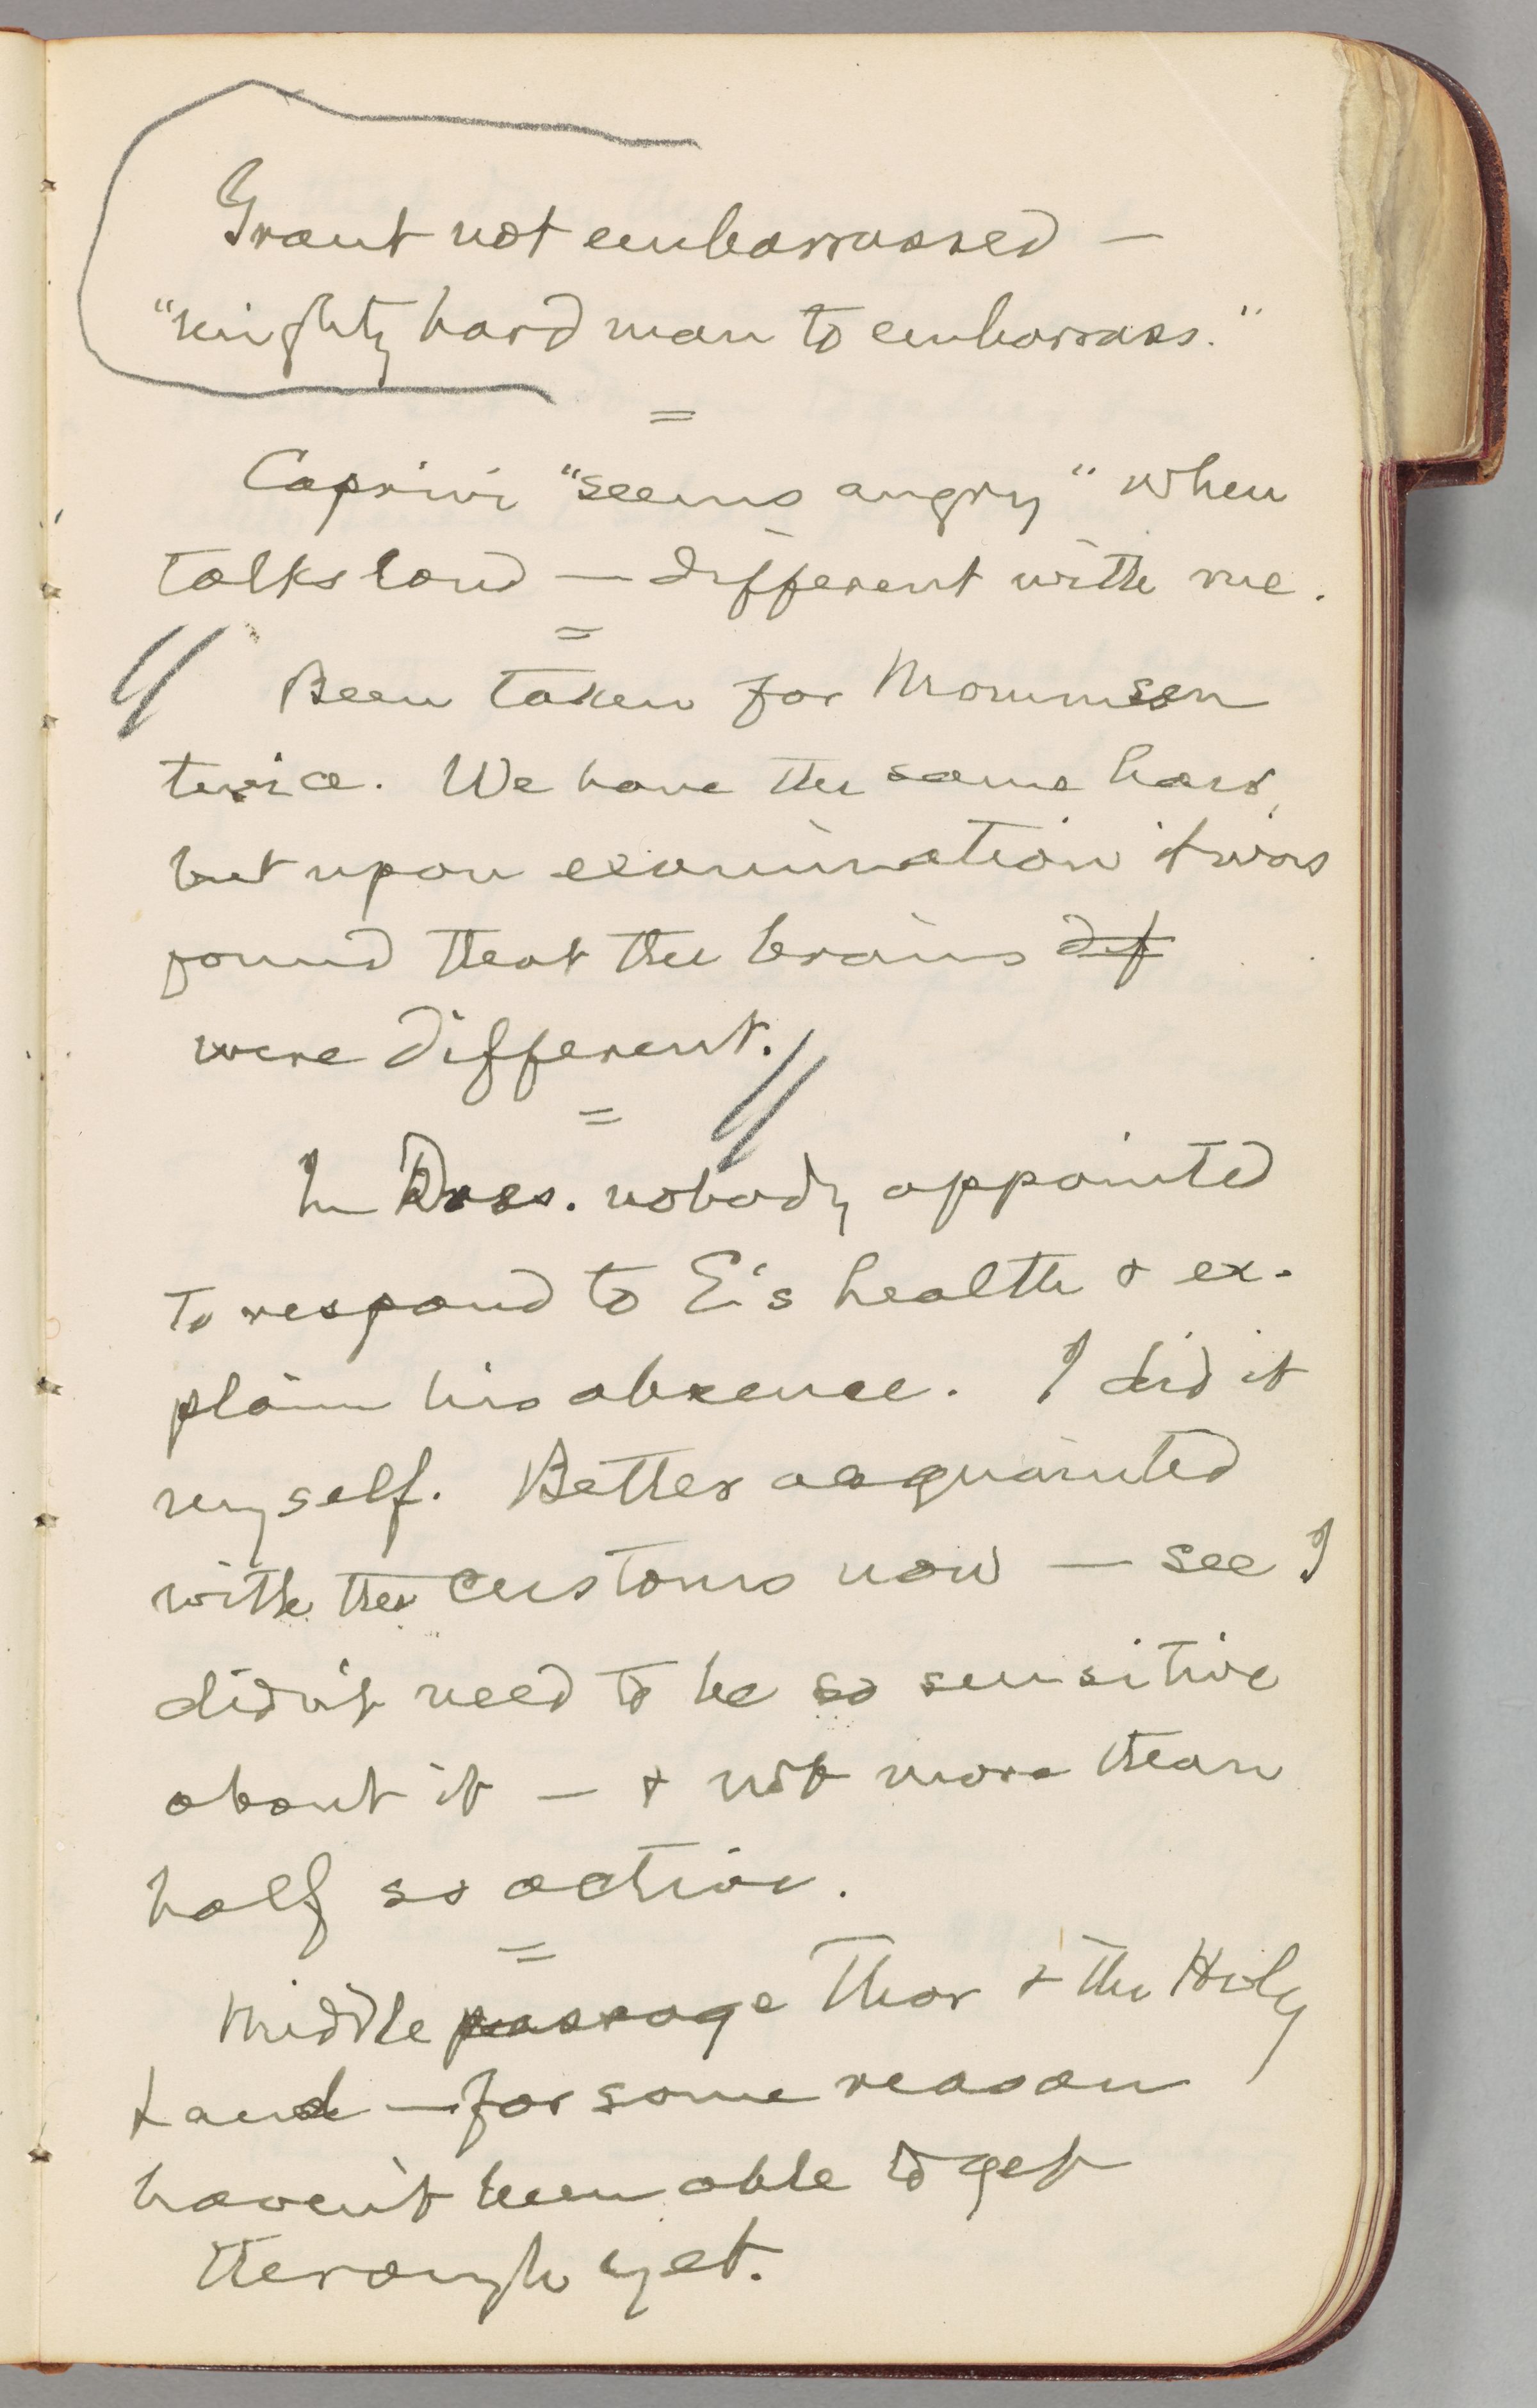 Grant not embarrassed —
"mighty hard man to embarrass."
=
Caprivi "seems angry" when
talks loud — different with me.
=
Been taken for Mommsen
twice. We have the same hair,
but upon examination it was
found that the brains dif
were different.
=
In Dres. nobody appointed
to respond to E's health & ex-
plain his absence. I did it
myself. Better acquainted
with the customs now — see I
didn't need to be so sensitive
about it — & not more than
half so active.
=
Middle passage Thor & the Holy
Land — for some reason
haven't been able to get
through yet.